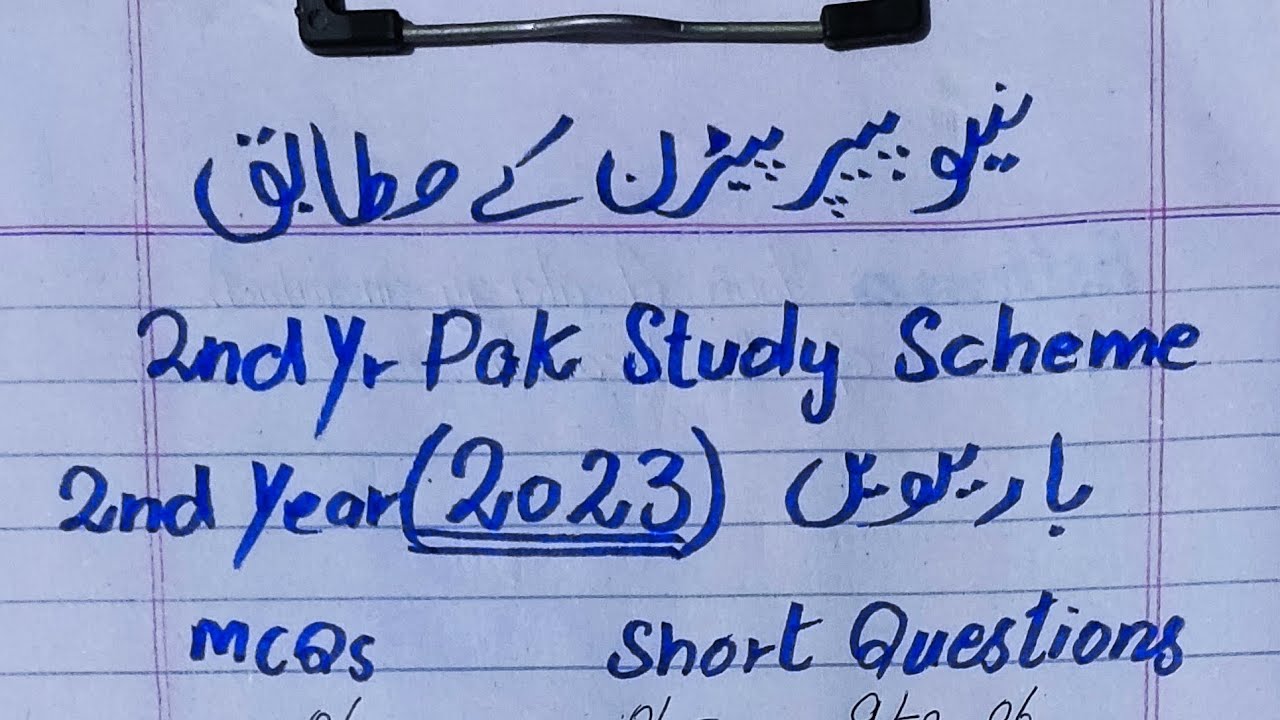 نیو پیپر پیٹرن کے مطابق
2nd Yr Pak Study Scheme
2nd Year (2023) بارہویں
MCQs Short Questions